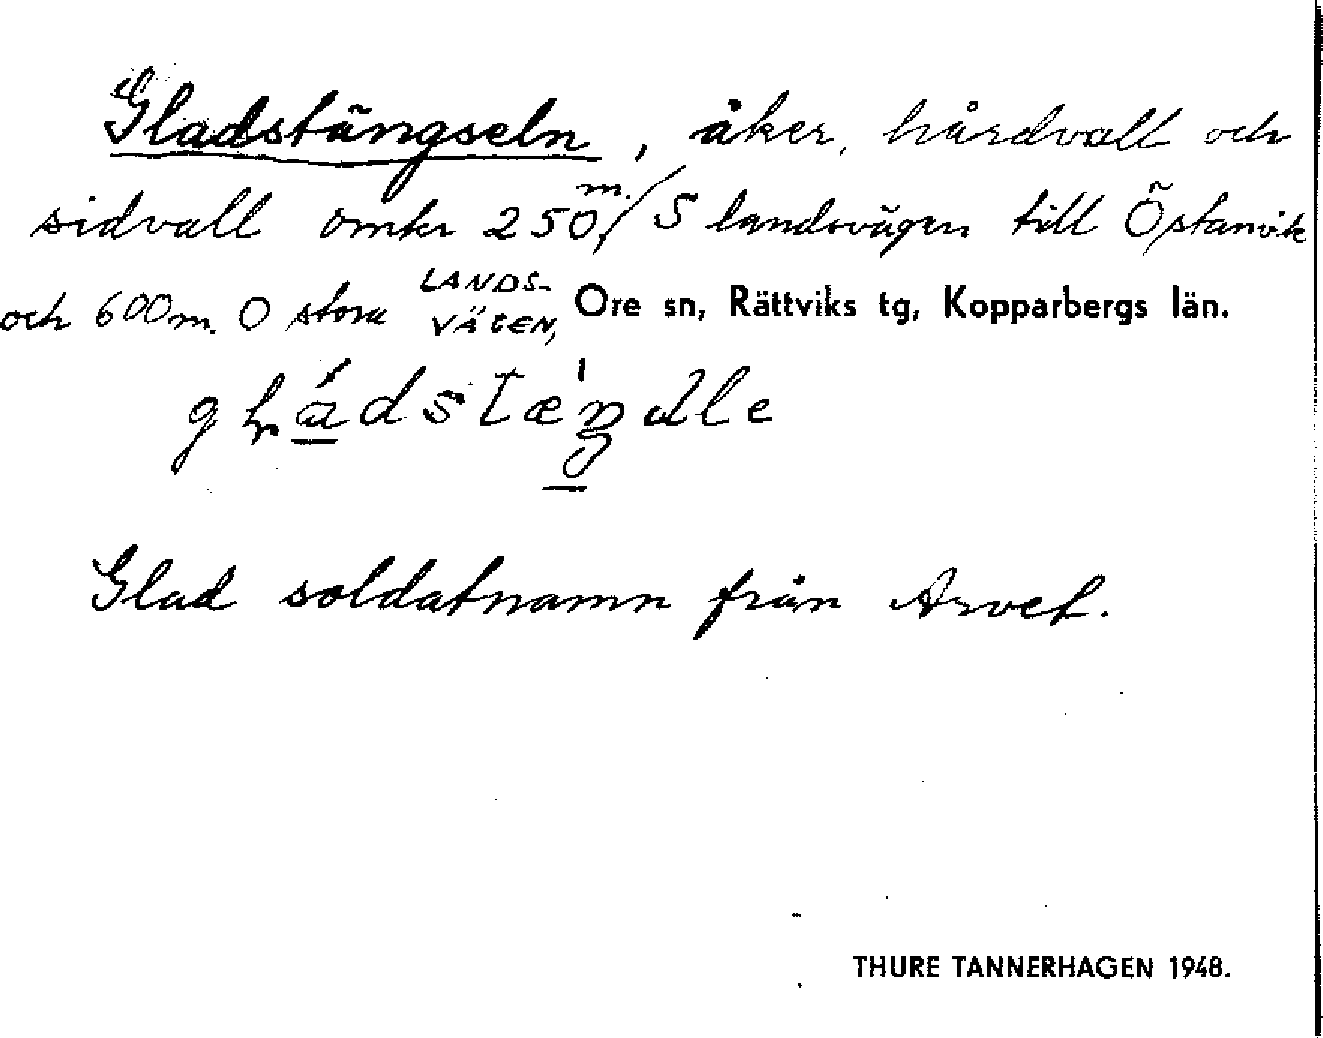 Gladstängseln, åker, hårdvall och
sidvall omkr 250 m. S landsvägen till Östanvik
och 600 m. O stora LANDSVÄGEN, Ore sn, Rättviks tg, Kopparbergs län.
Glad soldatnamn från Arvet.
THURE TANNERHAGEN 1948.